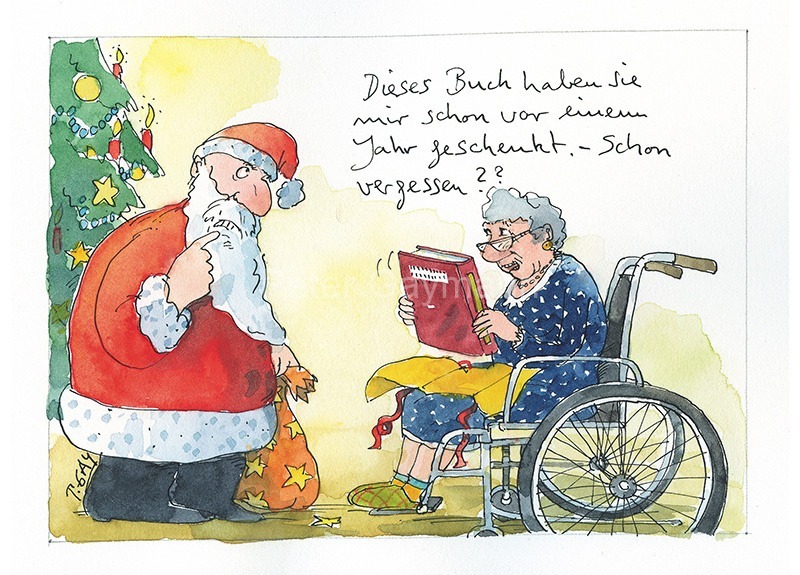 Dieses Buch haben sie
mir schon vor einem
Jahr geschenkt. – Schon
vergessen??
P. GAY